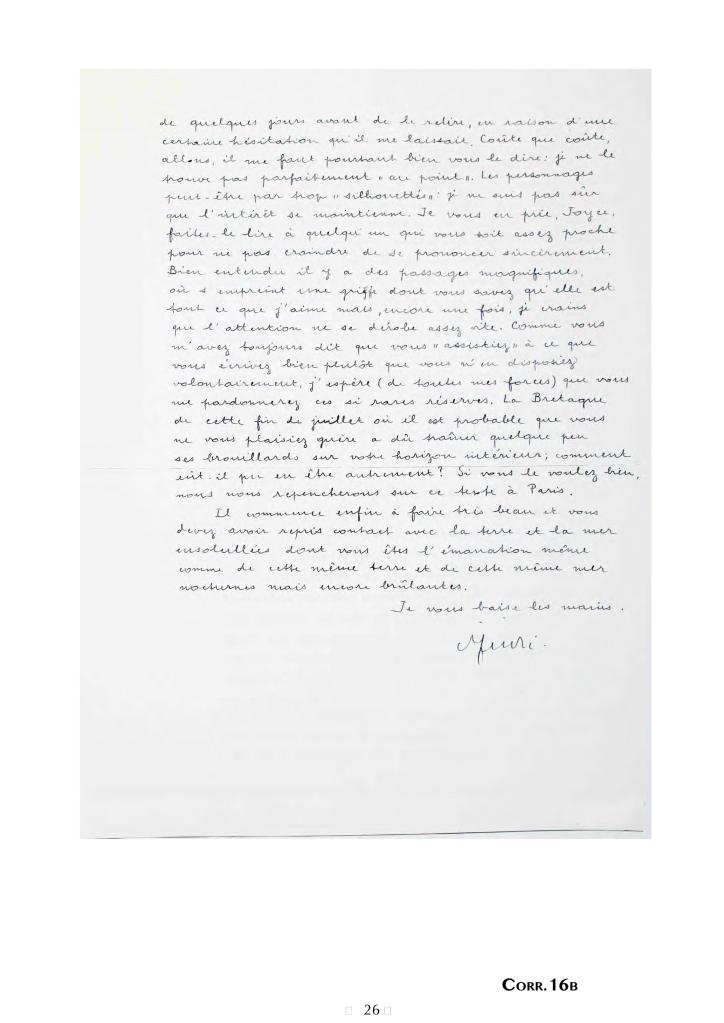 de quelques jours avant de le relire, en raison d'une
certaine hésitation qu'il me laissait. Coûte que coûte,
allons, il me faut pourtant bien vous le dire : je ne le
trouve pas parfaitement « au point ». Les personnages
peut-être par trop « silhouettés » : je ne suis pas sûr
que l'intérêt se maintienne. Je vous en prie, Joyce,
faites-le lire à quelqu'un qui vous soit assez proche
pour ne pas craindre de se prononcer sincèrement.
Bien entendu il y a des passages magnifiques,
où s'empreint une griffe dont vous savez qu'elle est
tout ce que j'aime mais, encore une fois, je crains
que l'attention ne se dérobe assez vite. Comme vous
m'avez toujours dit que vous « assistiez » à ce que
vous écrivez bien plutôt que vous n'en disposiez
volontairement, j'espère (de toutes mes forces) que vous
me pardonnerez ces si rares réserves. La Bretagne
de cette fin de juillet où il est probable que vous
ne vous plaisiez guère a dû traîner quelque peu
ses brouillards sur votre horizon intérieur ; comment
eût-il pu en être autrement ? Si vous le voulez bien,
nous nous repencherons sur ce texte à Paris.
Il commence enfin à faire très beau et vous
devez avoir repris contact avec la terre et la mer
ensoleillées dont vous êtes l'émanation même
comme de cette même terre et de cette même mer
nocturnes mais encore brûlantes.
Je vous baise les mains.
CORR.16B
26